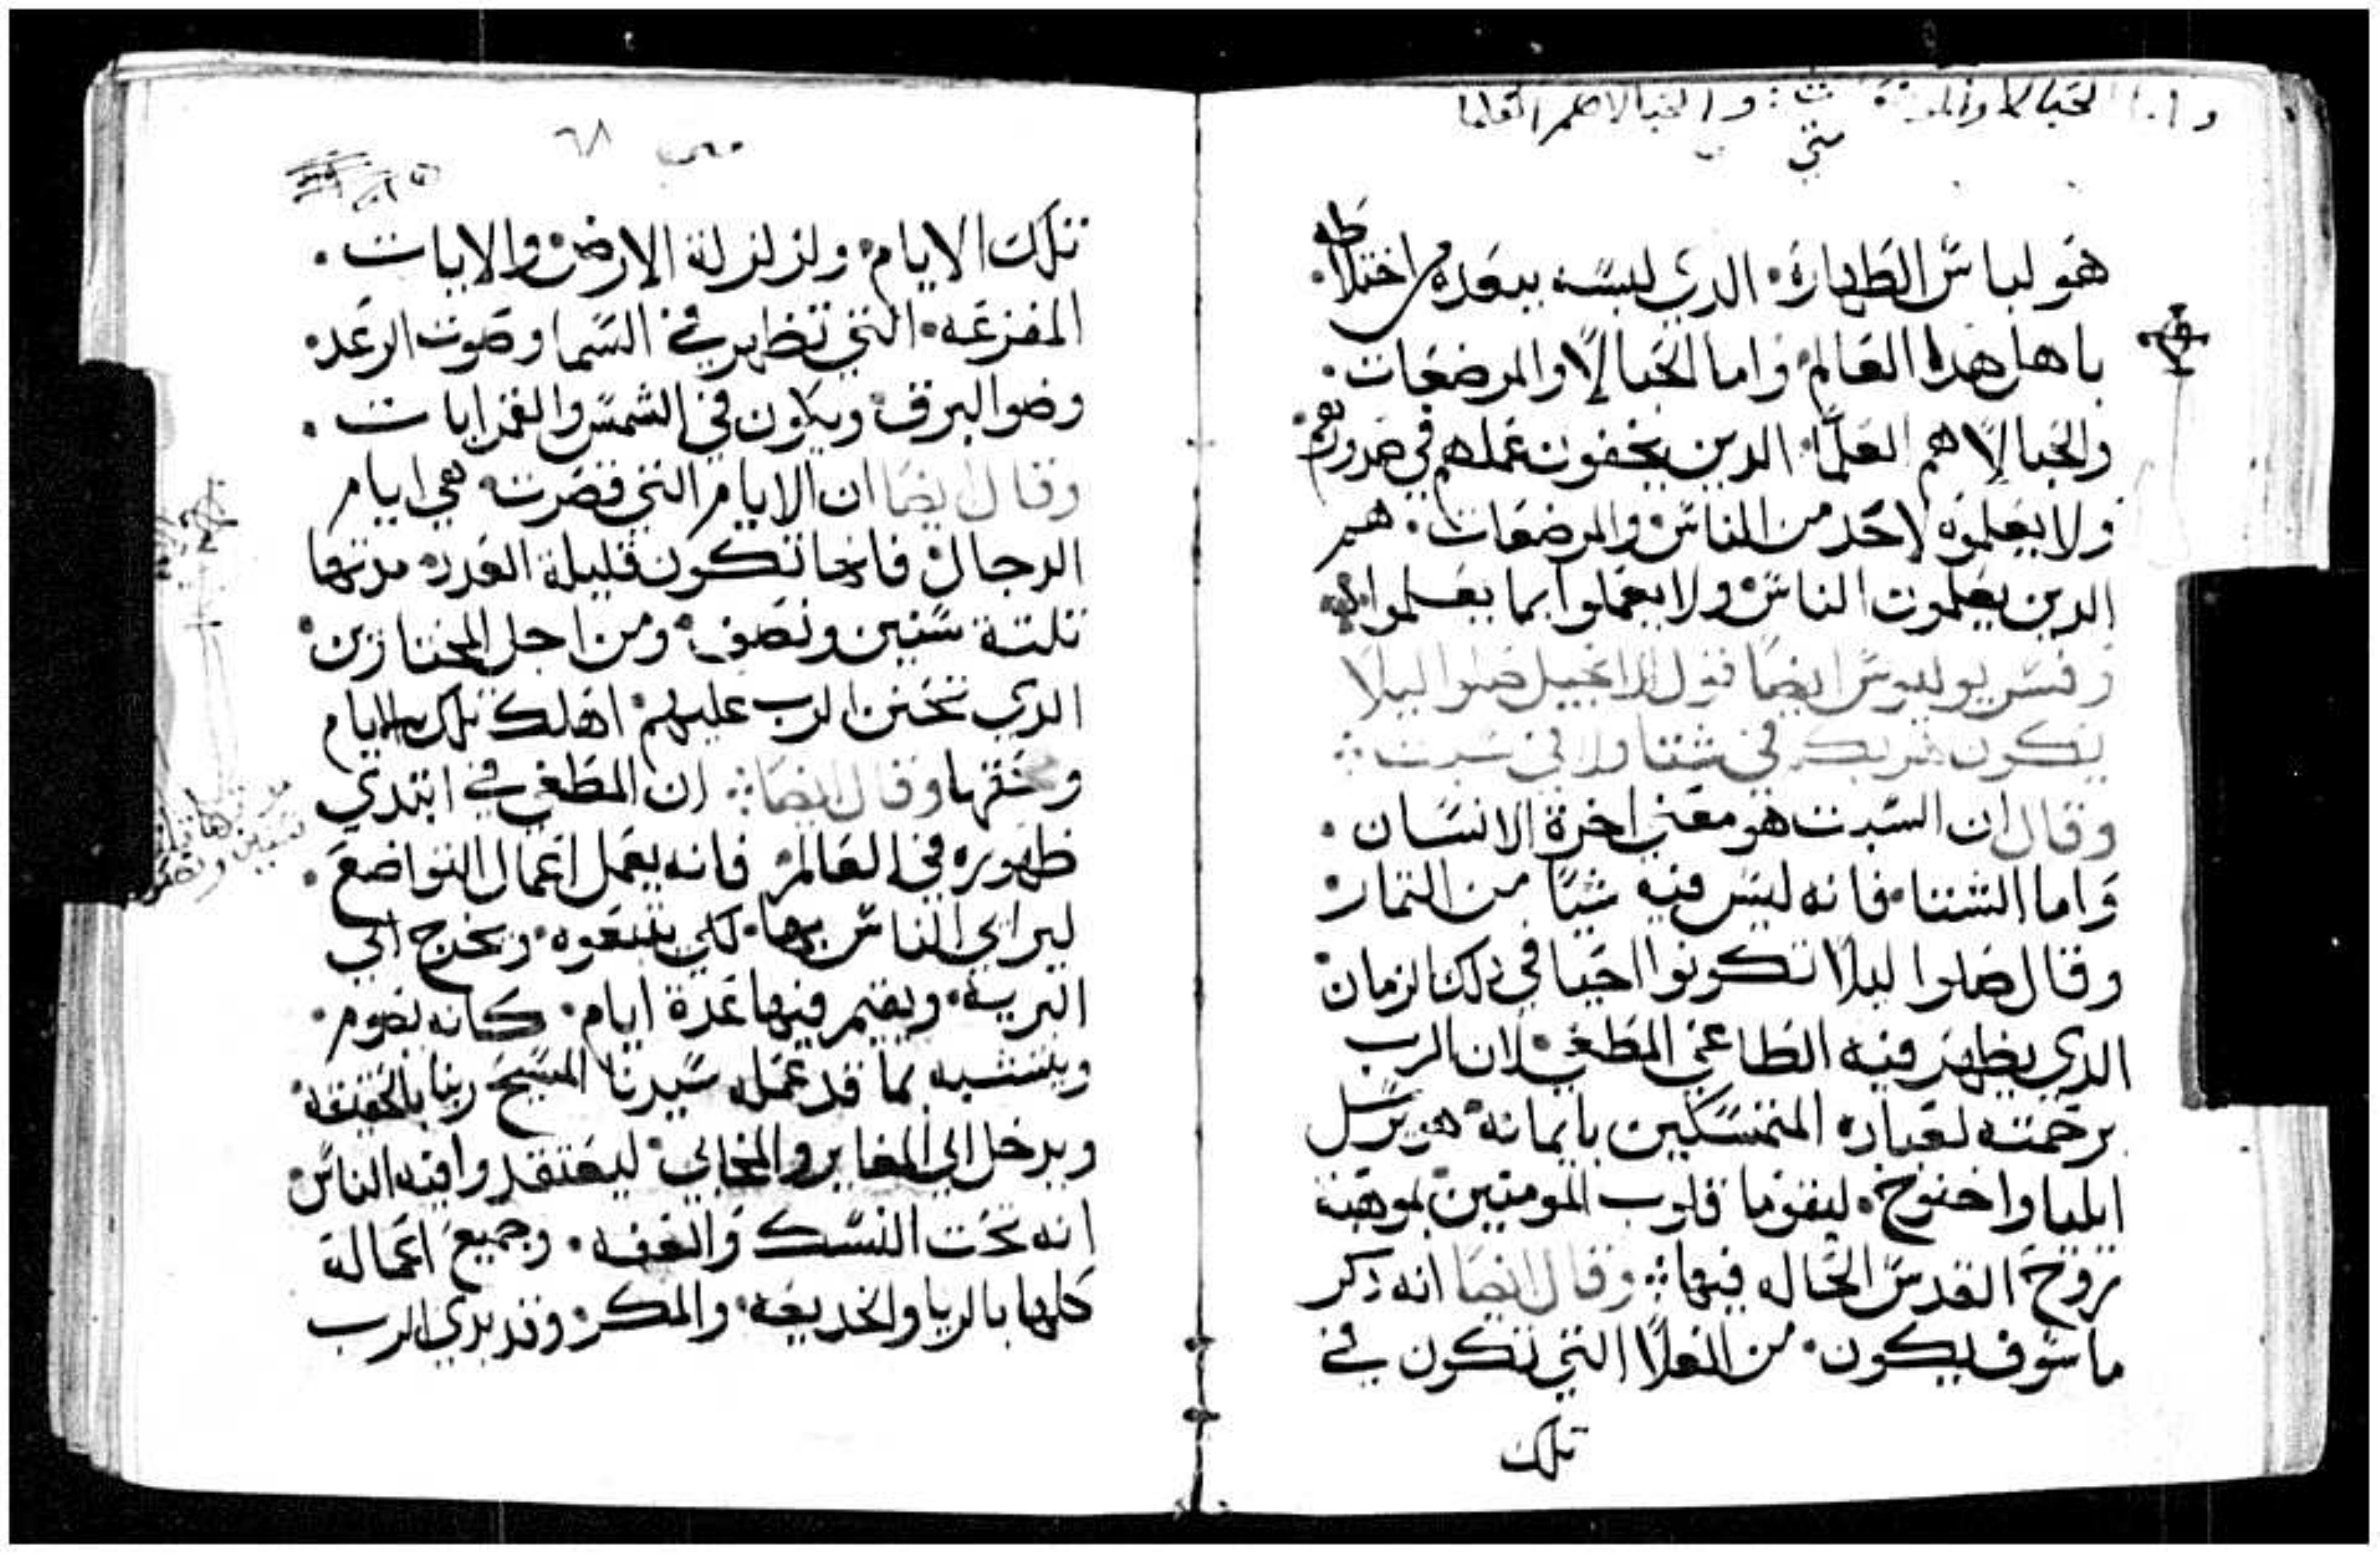 واما الحبالا والمر والحبالا هم العلما
متي
هو لباس الطهاره الدي لبسه ببعده من اختلاطه
باهل هدا العالم واما الحبالا والمرضعات
والحبالا هم العلما الدين يخفون عملهم في صدورهم
ولا يعلموه لاحد من الناس والمرضعات هم
الدين يعلمون الناس ولا يعملوا بما يعلموا به
وفسر بوليدوس ايضا قول الانجيل صلوا ليلا
يكون هربكم في شتا ولا في سبت
وقال ان السبت هو معني اخرة الانسان
واما الشتا فانه ليس فيه شيا من التمار
وقال صلوا ليلا تكونوا احيا في دلك الزمان
الدي يظهر فيه الطاغي المطغي لان الرب
برحمته لعباده المتمسكين بايمانه هو يرسل
ايليا واخنوخ ليقوما قلوب المومنين بموهبة
روح القدس الحاله فيهما وقال ايضا انه دكر
ما سوف يكون من الغلا التي تكون في
تلك
متي ٦٨
تلك الايام ولزلزلة الارض والايات
المفزعه التي تظهر في السما وصوت الرعد
وضو البرق ويكون في الشمس والقمر ايات
وقال ايضا ان الايام التي قصرت هي ايام
الدجال فانها تكون قليلة العدد مدتها
تلتة سنين ونصف ومن اجل المختارين
الدي تحنن الرب عليهم اهلك تلك الايام
ومحقها وقال ايضا ان المطغي في ابتدي
ظهوره في العالم فانه يعمل اعمال التواضع
ليراي الناس بها لكي يتبعوه ويخرج الي
البريه ويقيم فيها عدة ايام كانه يصوم
ويتشبه بما قد عمله سيدنا المسيح ربنا بالحقيقه
ويدخل الي المغاير والمخابي ليعتقدوا فيه الناس
انه تحت النسك والعفه وجميع اعماله
كلها بالريا والخديعه والمكر وقد بدي الرب